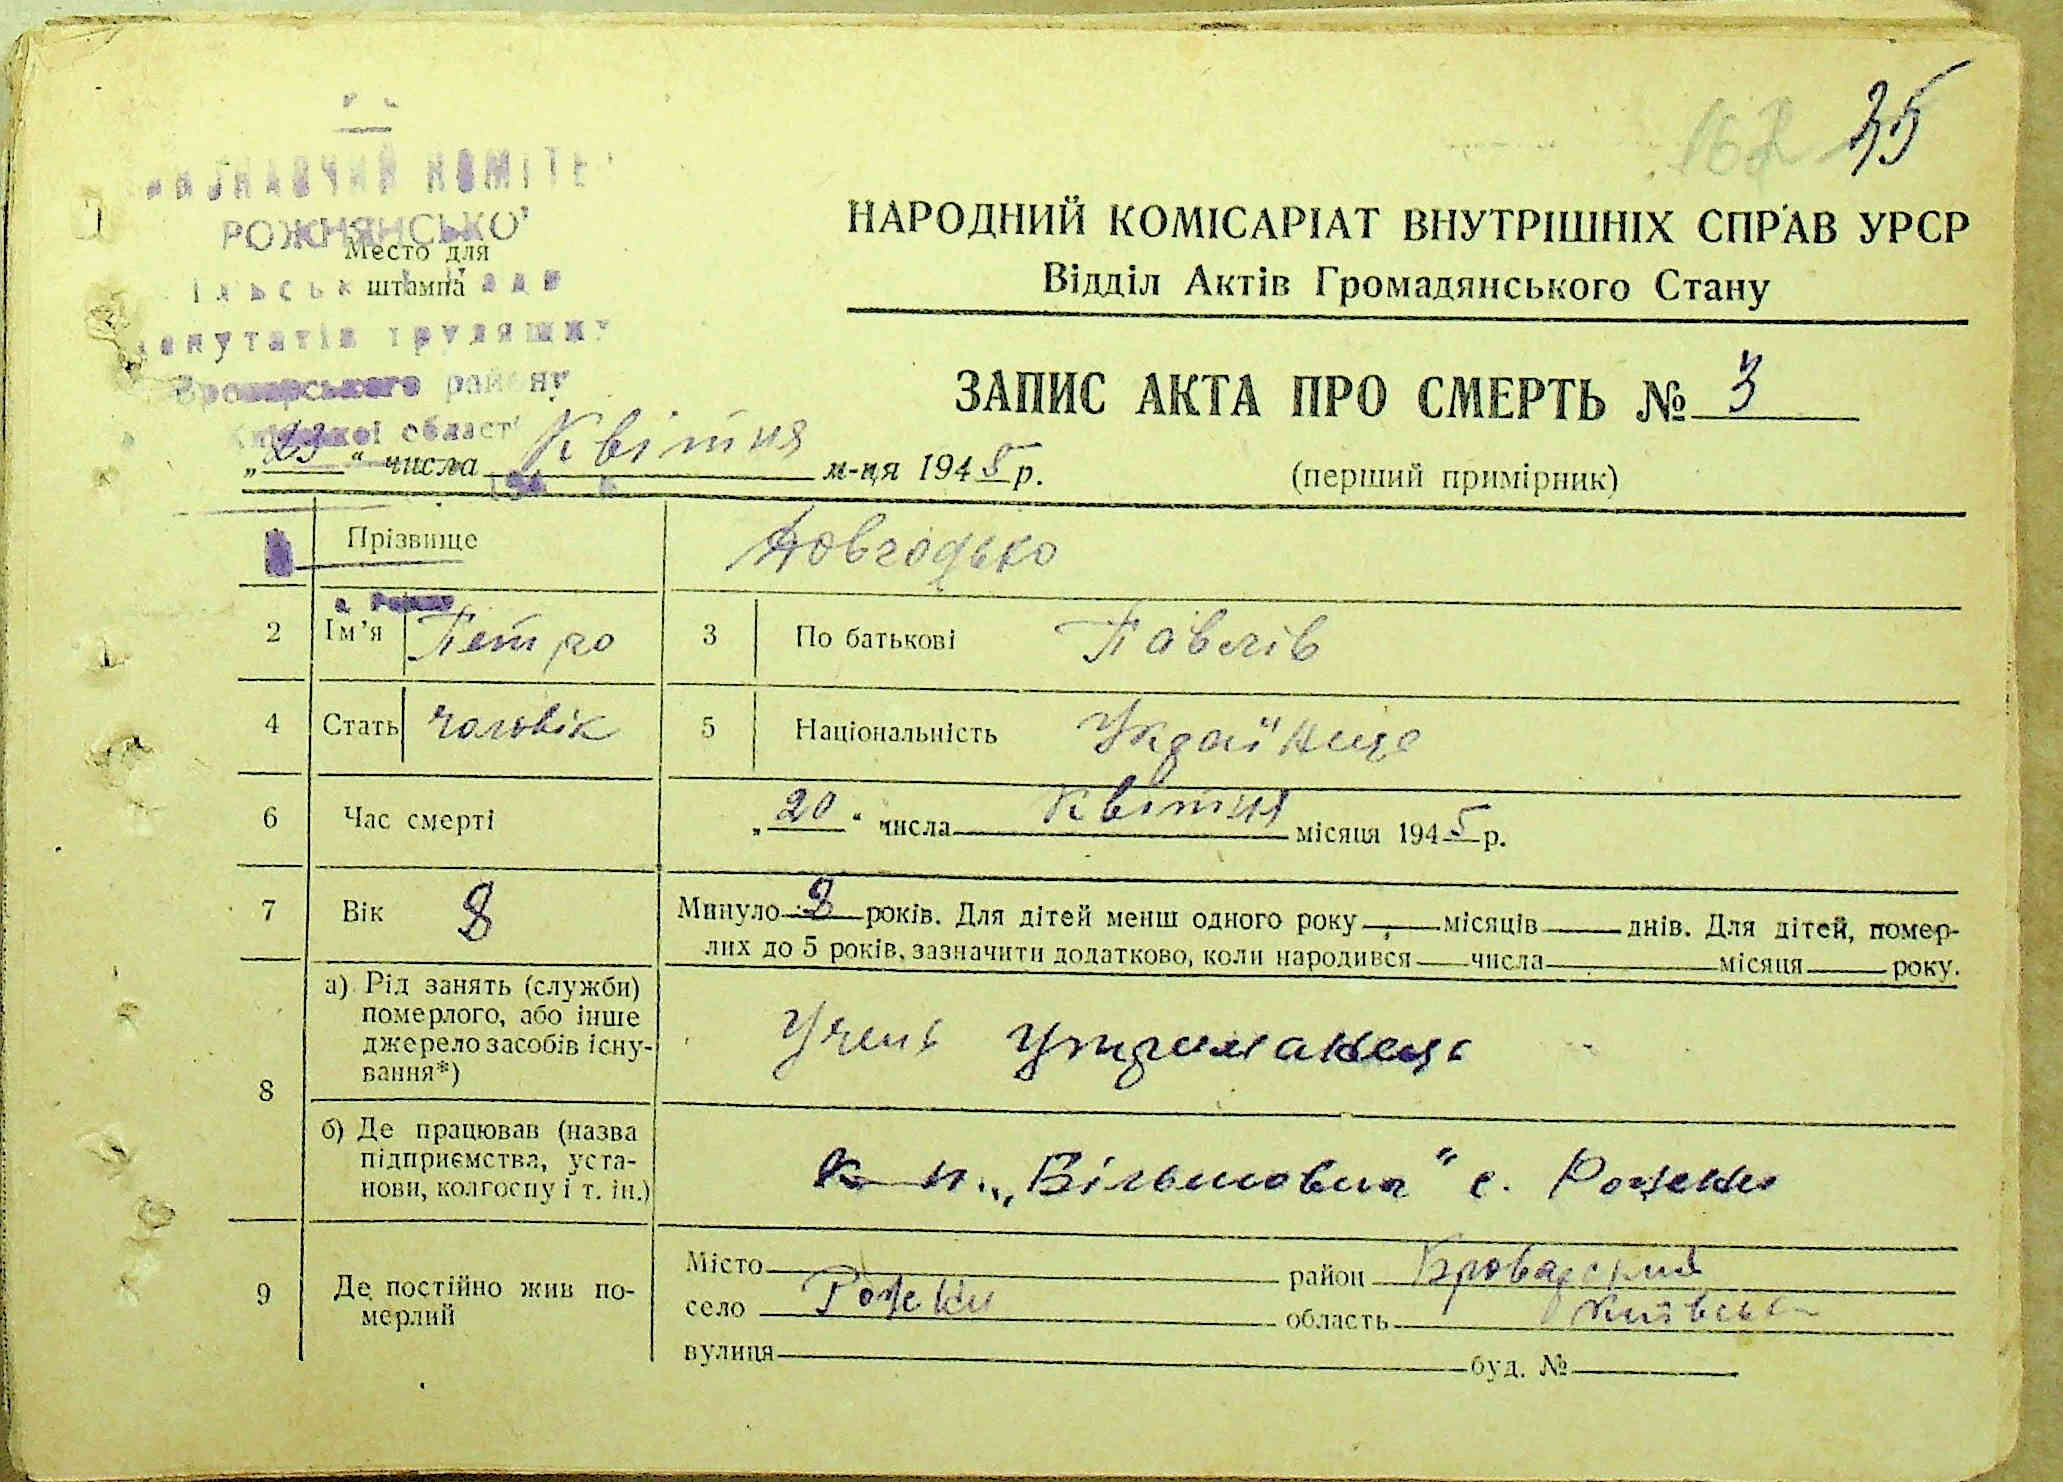 35
162
НАРОДНИЙ КОМІСАРІАТ ВНУТРІШНІХ СПРАВ УРСР
Відділ Актів Громадянського Стану
РОЖНЯНСЬКО
Место для
штампа
депутатів трудящих
Броварського району
Київської області
ЗАПИС АКТА ПРО СМЕРТЬ № 3
„23“ числа Квітня м-ця 1945 р.
(перший примірник)
Прізвище Довгодько
2 Ім’я Петро 3 По батькові Павлів
4 Стать чоловік 5 Національність Українець
6 Час смерті „20“ числа Квітня місяця 1945 р.
7 Вік 8 Минуло 8 років. Для дітей менш одного року місяців днів. Для дітей, помер-
лих до 5 років, зазначити додатково, коли народився числа місяця року.
8 а) Рід занять (служби)
померлого, або інше
джерело засобів існу-
вання*)
Учень Утриманець
б) Де працював (назва
підприємства, уста-
нови, колгоспу і т. ін.)
„Більшовик“ с. Рожни
9 Де постійно жив по-
мерлий
Місто район Броварский
село Рожни область Київська
вулиця буд. №